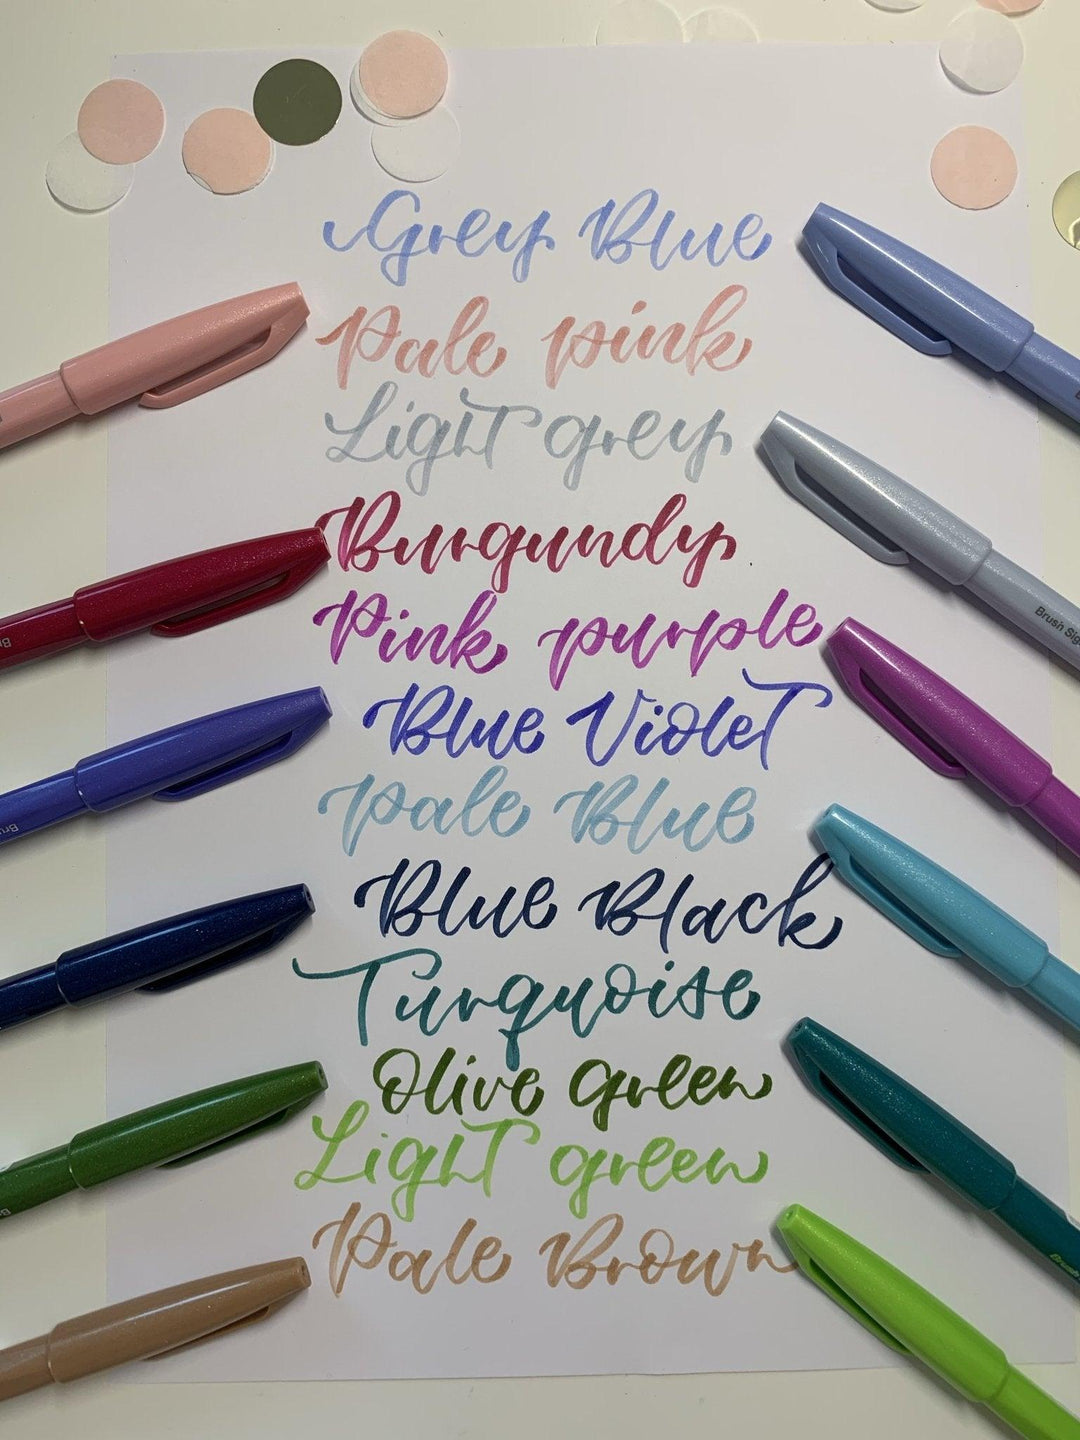 Grey Blue
Pale pink
Light grey
Burgundy
Pink purple
Blue Violet
Pale Blue
Blue Black
Turquoise
Olive green
Light green
Pale Brown
Brush Sig
Bru
Brush